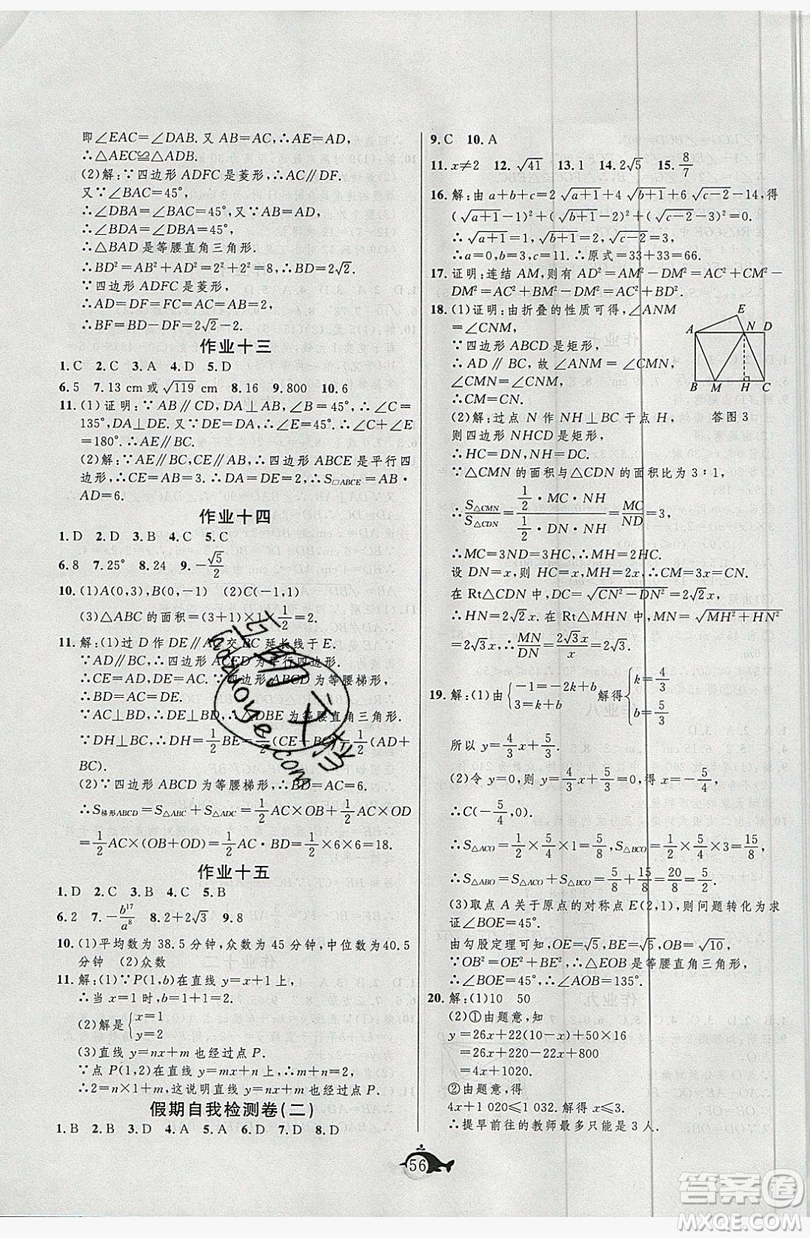 即∠EAC=∠DAB.又AB=AC,∴AE=AD.
∴△AEC≌△ADB.
(2)解:∵四边形ADFC是菱形,∴AC∥DF.
又∵∠BAC=45°,
∴∠DBA=∠BAC=45°,
∴∠BDA=∠DBA=45°,
∴△BAD是等腰直角三角形.
∴BD²=AB²+AD²=2²+2²=8,∴BD=2√2.
∵四边形ADFC是菱形,
∴AD=DF=AC=AB=2,
∴BF=BD-DF=2√2-2.
作业十三
1.C 2.C 3.A 4.D 5.D
6.5 7.13 cm或√119 cm 8.16 9.800 10.6
11.(1)证明:∵AB∥CD,DAB=∠B=45°,∴∠C=
135°,DAB=∠DAE=45°,∴∠EAB=90°,∴∠C+∠E
=180°.
(2)解:∵AE∥BC,∴四边形ABCE是平行四
边形,∴AE=BC=3,∴AD=3√2,∴S□ABCE=AB·
AD=6.
作业十四
1.D 2.D 3.B 4.C 5.C
6.8 7.25° 8.24 9.-√5/2
10.(1)A(0,3),B(0,-1) (2)C(-1,1)
(3)△ABC的面积=(3+1)×1×1/2=2.
11.解:(1)过D作DE∥AC交BC延长线于E.
∵AD∥BC,∴四边形ACED为平行四边形.
∴CE=AD,DE=AC.∵四边形ABCD为等腰梯形,
∴BD=AC=DE.
∵AC⊥BD,∴DE⊥BD.∴△DBE为等腰直角三角形.
∵DH⊥BC,∴DH=1/2BE=1/2(CE+BC)=1/2(AD+
BC).
(2)∵四边形ABCD为等腰梯形,∴BD=AC=6.
∴S梯形ABCD=S△ABC+S△ADC=1/2AC×OB+1/2AC×OD
=1/2AC×(OB+OD)=1/2AC·BD=1/2×6×6=18.
作业十五
1.D 2.C 3.B 4.C 5.B
6.2 7.-b¹⁷/a⁸ 8.2+2√3 9.8
10.(1)平均数为38.5分钟,众数为45分钟,中位数为40.5
分钟 (2)众数
11.解:(1)∵P(1,b)在直线y=x+1上,
∴当x=1时,b=1+1=2.
(2)解是{x=1 y=2
(3)直线y=nx+m也经过点P.
∵点P(1,2)在直线y=mx+n上,∴m+n=2,
∴2=n×1+m,这说明直线y=nx+m也经过点P.
假期自我检测卷(二)
1.B 2.B 3.D 4.A 5.D 6.D 7.D 8.D
9.C 10.A
11.x≠2 12.√41 13.1 14.2√5 15.8/7
16.解:由a+b+c=2√(a+1)+4√(b+1)+6√(c-2)-14,得
(√(a+1)-1)²+(√(b+1)-2)²+(√(c-2)-3)²=0.
∴√(a+1)=1,√(b+1)=2,√(c-2)=3.
∴a=0,b=3,c=11.∴原式=33+33=66.
17.证明:连结AM,则有AD²=AM²-DM²=AC²+CM²-
DM²=AC²+BM²-DM²=AC²+BD².
18.(1)证明:由折叠的性质可得,∠ANM
=∠CNM,
∵四边形ABCD是矩形,
∴AD∥BC,∴∠ANM=∠CMN.
∴∠CMN=∠CNM.
∴CM=CN.
E
A N D
B M H C
答图3
(2)解:过点N作NH⊥BC于点H,
则四边形NHCD是矩形,
∴HC=DN,NH=DC.
∵△CMN的面积与△CDN的面积比为3:1,
∴S△CMN/S△CDN=(1/2·MC·NH)/(1/2·DN·NH)=MC/DN=3,
∴MC=3ND=3HC.∴MH=2HC.
设DN=x,则HC=x,MH=2x,∴CM=3x=CN.
在Rt△CDN中,DC=√(CN²-DN²)=2√2x,
∴HN=2√2x.在Rt△MHN中,MN=√(MH²+HN²)
=2√3x,∴MN/DN=2√3x/x=2√3.
19.解:(1)由{-1=-2k+b 3=k+b 解得{k=4/3 b=5/3
所以y=4/3x+5/3
(2)令y=0,即0=4/3x+5/3,得x=-5/4,
∴C(-5/4,0).
∴S△ACO=1/2×5/4×1=5/8,S△BCO=1/2×5/4×3=15/8,
∴S△ABO=S△ACO+S△BCO=5/8+15/8=5/2.
(3)取点A关于原点的对称点E(2,1),则问题转化为求
证∠BOE=45°.
由勾股定理可得,OE=√5,BE=√5,OB=√10,
∵OB²=OE²+BE²,∴△EOB是等腰直角三角形.
∴∠BOE=45°.∴∠AOB=135°.
20.解:(1)10 50
(2)①由题意,知
y=26x+22(10-x)+50×16
=26x+220-22x+800
即y=4x+1020.
②由题意,得
4x+1 020≤1 032.解得x≤3.
∴提早前往的教师最多只能是3人.
56
答案圈
MXQE.COM